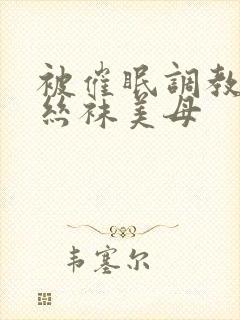 被催眠調教
絲袜美母
韦塞尔